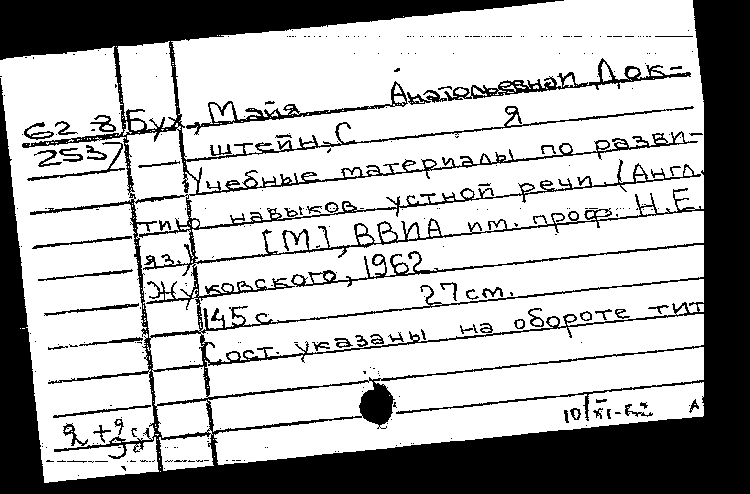 62-8 Бух, Майя Анатольевна и Док-
2537 штейн, С Я
Учебные материалы по разви-
тию навыков устной речи. (Англ.
яз.) [М.], ВВИА им. проф. Н.Е.
Жуковского, 1962.
145 с. 27 см.
Сост. указаны на обороте тит